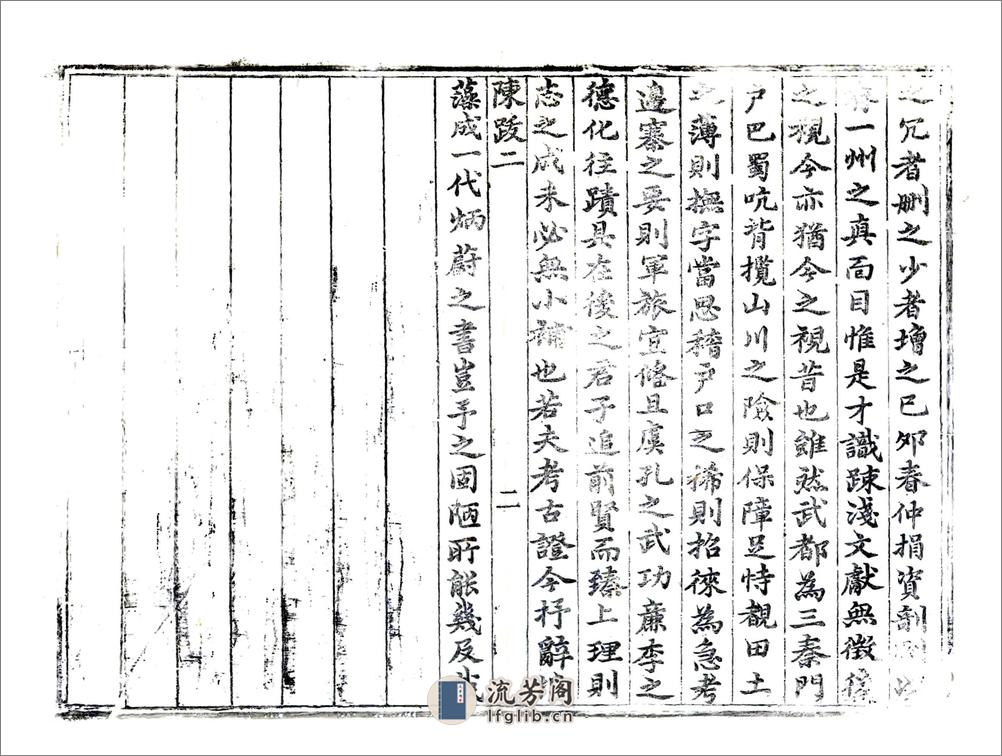 之冗者刪之少者增之己夘春仲捐資剞
一州之真面目惟是才識踈淺文獻無徵
之視今亦猶今之視昔也雖然武都為三秦門
戶巴蜀吭背攬山川之險則保障足恃覩田土
之薄則撫字當思稽戶口之稀則招徠為急考
邊塞之要則軍旅宜脩且虞孔之武功廉李之
德化往蹟具在後之君子追前賢而臻上理則
志之成未必無小補也若夫考古證今抒辭
陳跋二
二
藻成一代炳蔚之書豈予之固陋所能幾及
流芳阁
lfglib.cn